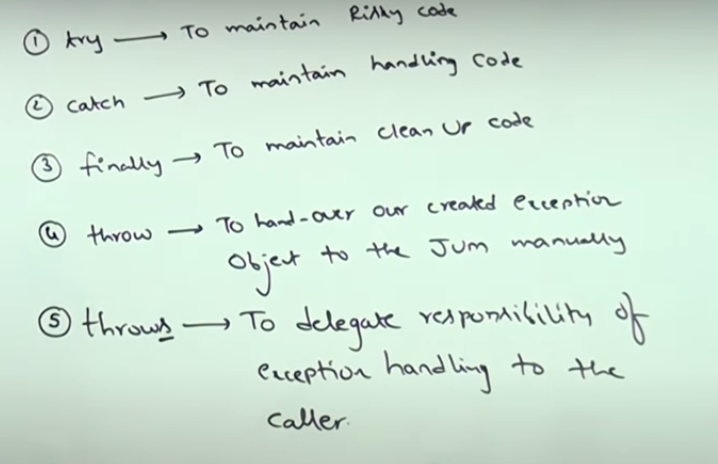 ① try → To maintain Risky code
② catch → To maintain handling code
③ finally → To maintain clean up code
④ throw → To hand-over our created exception
object to the JVM manually
⑤ throws → To delegate responsibility of
exception handling to the
caller.